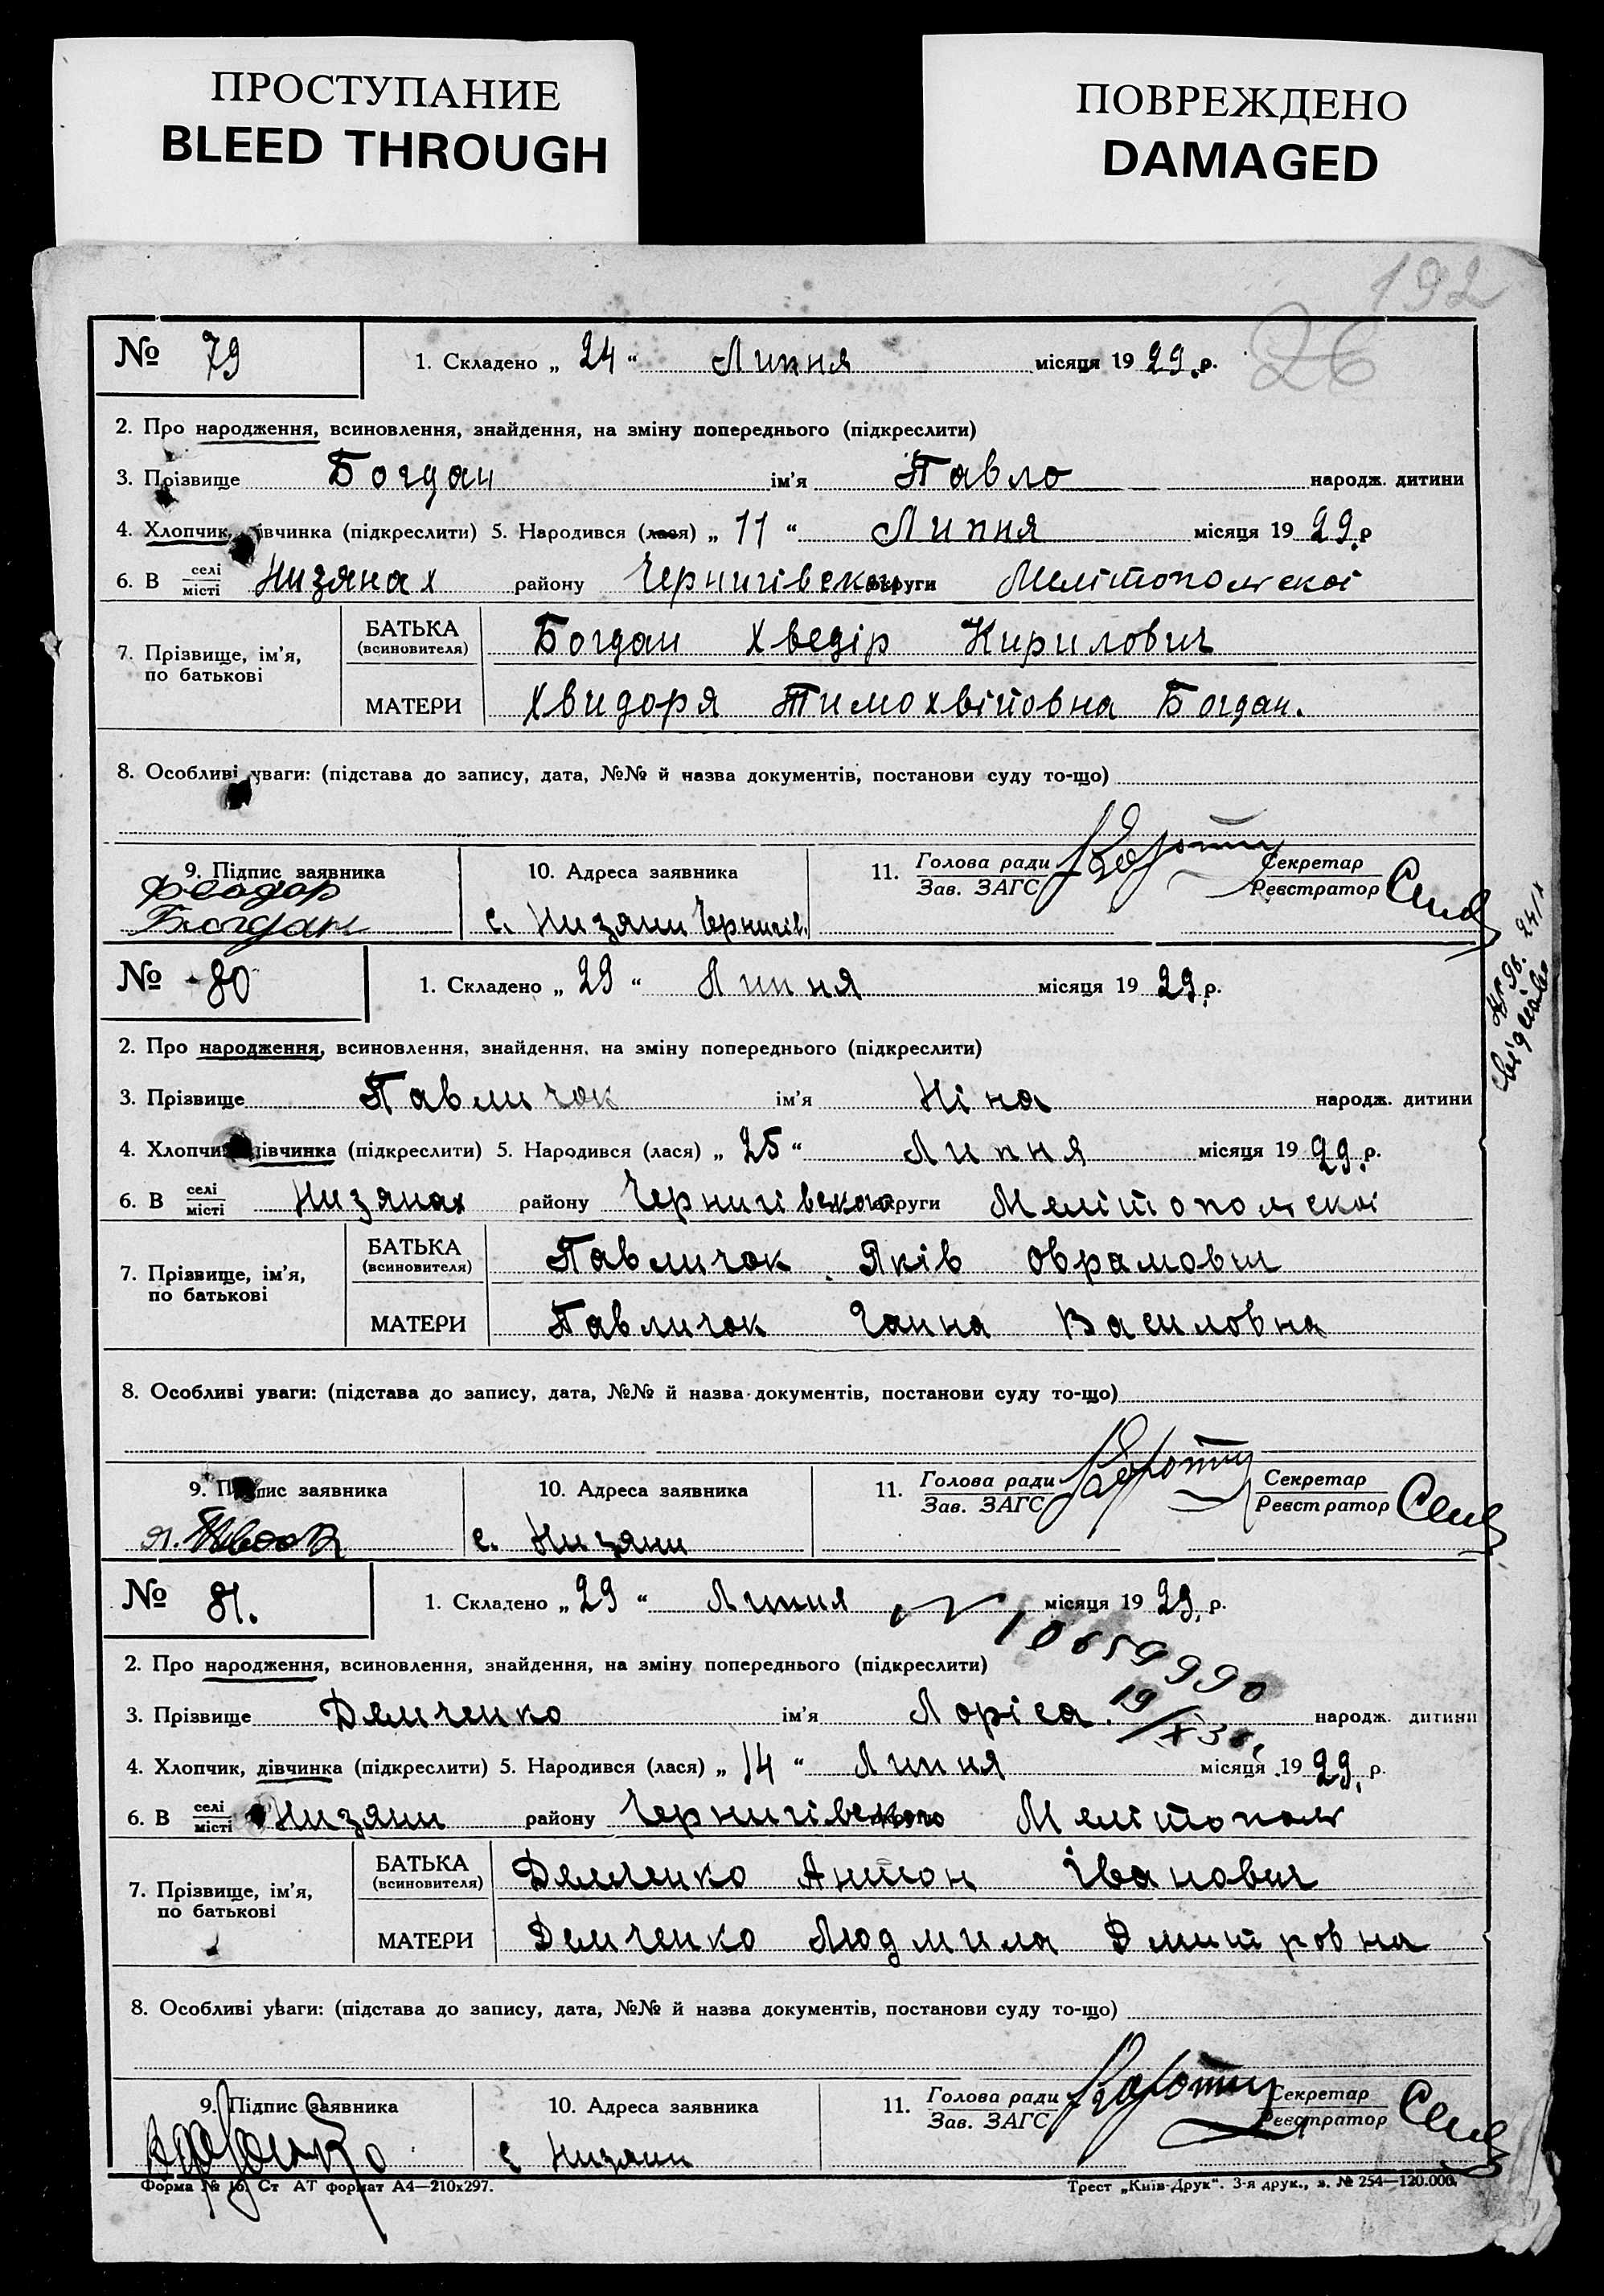 ПРОСТУПАНИЕ
BLEED THROUGH
ПОВРЕЖДЕНО
DAMAGED
192
26
№ 79
1. Складено „ 24 “ Липня місяця 19 29. р.
2. Про народження, всиновлення, знайдення, на зміну попереднього (підкреслити)
3. Прізвище Богдан ім'я Павло народж. дитини
4. Хлопчик, дівчинка (підкреслити) 5. Народився (лася) „ 11 “ Липня місяця 19 29. р
6. В селі місті Низянах району Чернигівского округи Мелітопольскоі
7. Прізвище, ім'я, по батькові
БАТЬКА (всиновителя) Богдан Хведір Кирилович
МАТЕРИ Хвидоря Тимохвійовна Богдан.
8. Особливі уваги: (підстава до запису, дата, №№ й назва документів, постанови суду то-що)
9. Підпис заявника
Феодор
Богдан
10. Адреса заявника
с. Низяни Чернигів.
11. Голова ради Зав. ЗАГС Секретар Реєстратор
№ 80
1. Складено „ 29 “ Липня місяця 19 29. р.
2. Про народження, всиновлення, знайдення, на зміну попереднього (підкреслити)
3. Прізвище Павличок ім'я Ніна народж. дитини
4. Хлопчик, дівчинка (підкреслити) 5. Народився (лася) „ 25 “ Липня місяця 19 29. р.
6. В селі місті Низянах району Чернигівского округи Мелітопольскоі
7. Прізвище, ім'я, по батькові
БАТЬКА (всиновителя) Павличок Яків Оврамович
МАТЕРИ Павличок Ганна Василовна
8. Особливі уваги: (підстава до запису, дата, №№ й назва документів, постанови суду то-що)
9. Підпис заявника
10. Адреса заявника
с. Низяни
11. Голова ради Зав. ЗАГС Секретар Реєстратор
№ 81.
1. Складено „ 29 “ Липня місяця 19 29. р.
2. Про народження, всиновлення, знайдення, на зміну попереднього (підкреслити)
3. Прізвище Демченко ім'я Лоріса. народж. дитини
4. Хлопчик, дівчинка (підкреслити) 5. Народився (лася) „ 14 “ Липня місяця 19 29. р.
6. В селі місті Низяни району Чернигівского Мелітополь
7. Прізвище, ім'я, по батькові
БАТЬКА (всиновителя) Демченко Антон Іванович
МАТЕРИ Демченко Людмила Дмитровна
8. Особливі уваги: (підстава до запису, дата, №№ й назва документів, постанови суду то-що)
9. Підпис заявника
10. Адреса заявника
с Низяни
11. Голова ради Зав. ЗАГС Секретар Реєстратор
Форма № 16. Ст АТ формат А4—210х297.
Трест „Київ-Друк“. 3-я друк., з. № 254—120.000.